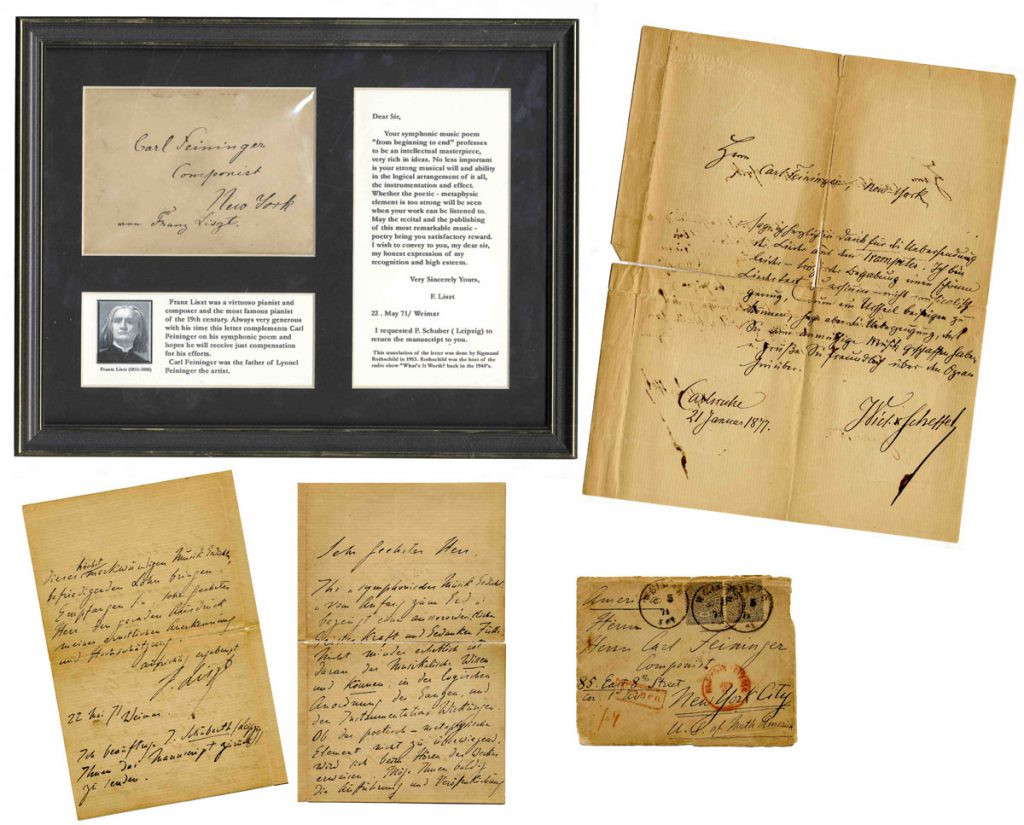 Carl Feininger
Componist
New York
von Franz Liszt.
Franz Liszt (1811-1886)
Franz Liszt was a virtuoso pianist and
composer and the most famous pianist
of the 19th century. Always very generous
with his time this letter complements Carl
Feininger on his symphonic poem and
hopes he will receive just compensation
for his efforts.
Carl Feininger was the father of Lyonel
Feininger the artist.
Dear Sir,
Your symphonic music poem
"from beginning to end" professes
to be an intellectual masterpiece,
very rich in ideas. No less important
is your strong musical will and ability
in the logical arrangement of it all,
the instrumentation and effect.
Whether the poetic - metaphysic
element is too strong will be seen
when your work can be listened to.
May the recital and the publishing
of this most remarkable music -
poetry bring you satisfactory reward.
I wish to convey to you, my dear sir,
my honest expression of my
recognition and high esteem.
Very Sincerely Yours,
F. Liszt
22 . May 71/ Weimar
I requested P. Schuber ( Leipzig) to
return the manuscript to you.
This translation of the letter was done by Sigmund
Rothschild in 1983. Rothschild was the host of the
radio show "What's It Worth? back in the 1940's.
Herrn Carl Feininger, New-York
herzlichen Dank für die Uebersendung
der Lieder aus dem Trompeter. Ich bin
leider - trotz der Begabung mein
Lieder nicht musicalisch
genug, um ein Urtheil beifügen zu
können, habe aber die Ueberzeugung, daß
Sie eine anmuthige Musik geschaffen haben,
u. grüße Sie freundlich über den Ozean
hinüber.
Carlsruhe
21 Januar 1877.
Vict. v Scheffel
Dieses höchst merkwürdigen Musik Gedichtes
befriedigenden Lohn bringen.
Empfangen Sie sehr geehrter
Herr den geraden Ausdruck
meiner ernstlichen Anerkennung
und Hochschätzung
aufrichtig ergebenst
F. Liszt
22 Mai 71 Weimar.
Ich beauftrage J. Schuberth (Leipzig)
Ihnen das Manuscript zurück
zu senden.
Sehr geehrter Herr,
Ihr symphonisches Musik Gedicht
"vom Anfang zum End"
bezeugt eine ausserordentliche
Kraft und Gedanken Fülle.
Nicht minder erheblich ist
daran das Musikalische Wissen
und Können in der logischen
Anordnung des Ganzen, und
den Instrumentations Wirkungen
Ob das poetisch - metaphysische
Element nicht zu überwiegend,
wird sich beim Hören des Werkes
erweisen. Möge Ihnen baldig
die Aufführung und Veröffentlichung
Amerika
Herrn
Herrn Carl Feininger
Componist
85. East 8th Street
New York City
U. S. of North America